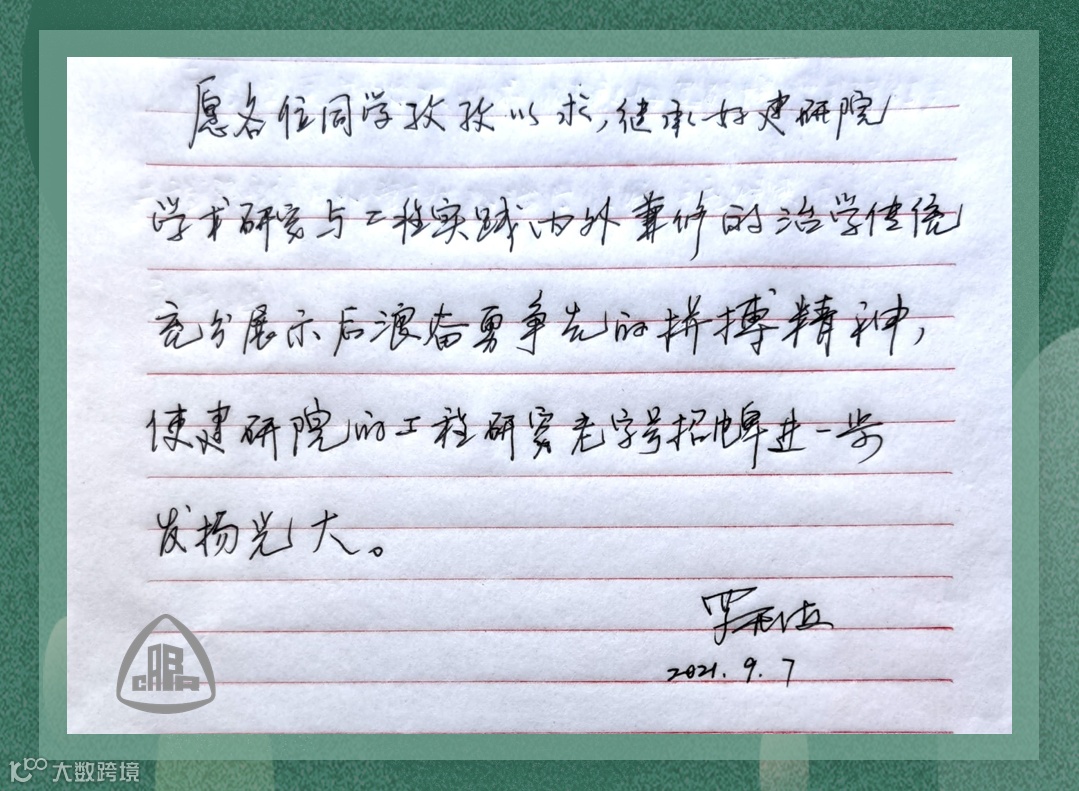 愿各位同学孜孜以求,继承好建研院
学术研究与工程实践内外兼修的治学传统
充分展示后浪奋勇争先的拼搏精神,
使建研院的工程研究老字号招牌进一步
发扬光大。
2021.9.7
CABR
大数跨境